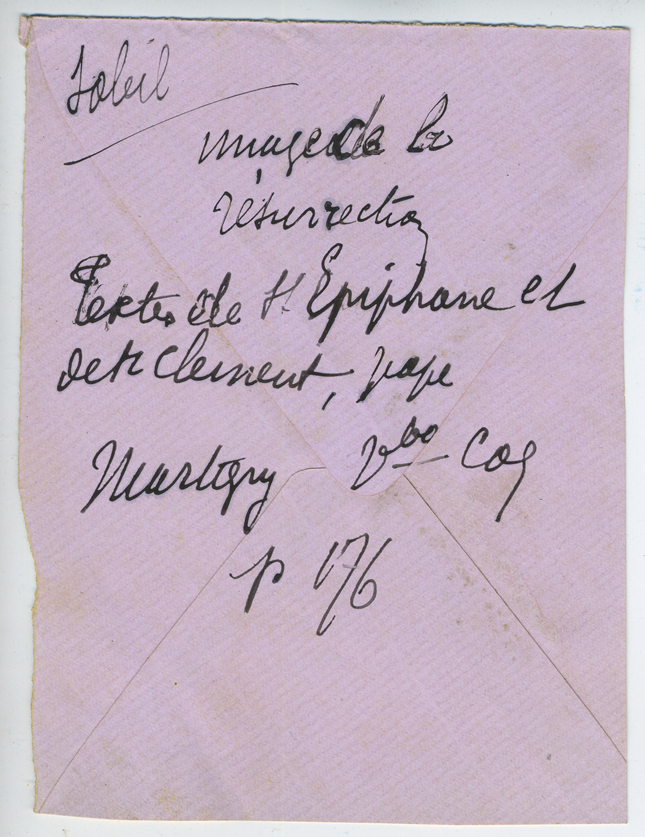 Soleil
image de la
résurrection
Textes de St Epiphane et
de St Clement, pape
Martigny vbo Coq
p 176